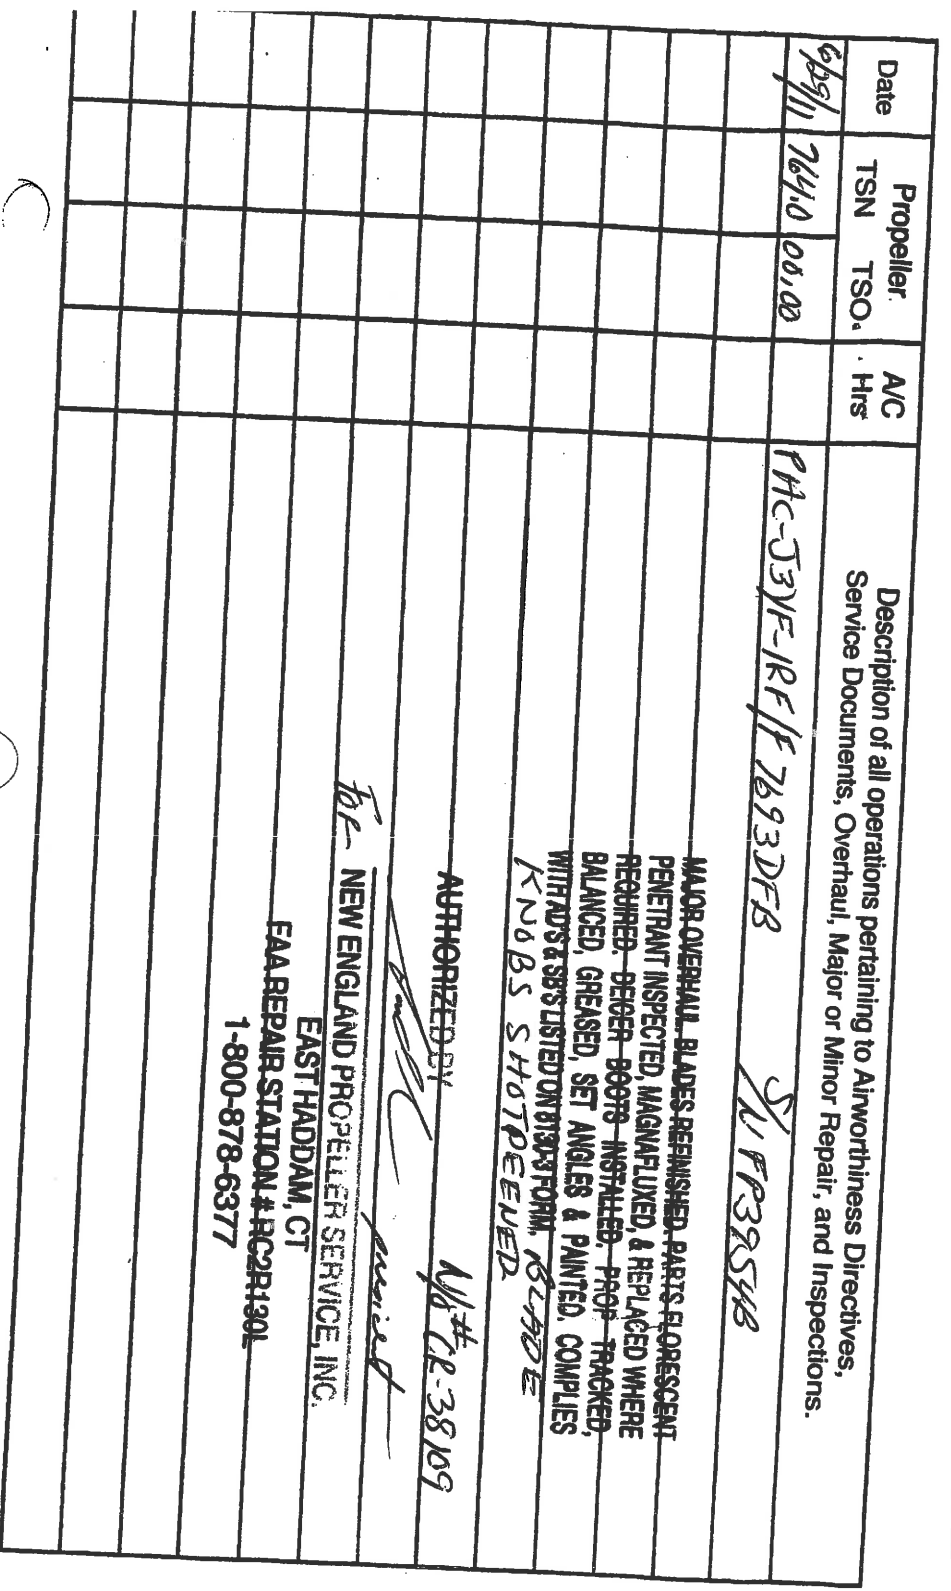 Date
Propeller
TSN TSO
A/C
Hrs
Description of all operations pertaining to Airworthiness Directives,
Service Documents, Overhaul, Major or Minor Repair, and Inspections.
6/29/11 764.0 00.00 S/N FP3954B
7693DFB
MAJOR OVERHAUL. BLADES REFINISHED. PARTS FLORESCENT
PENETRANT INSPECTED, MAGNAFLUXED, & REPLACED WHERE
REQUIRED. DEICER BOOTS INSTALLED. PROP TRACKED,
BALANCED, GREASED, SET ANGLES & PAINTED. COMPLIES
WITH AD'S & SB'S LISTED ON 8130-3 FORM. BLADE
KNOBS SHOTPEENED
AUTHORIZED BY W/O# CR-38109
FOR NEW ENGLAND PROPELLER SERVICE, INC.
EAST HADDAM, CT
FAA REPAIR STATION # RC2R130L
1-800-878-6377